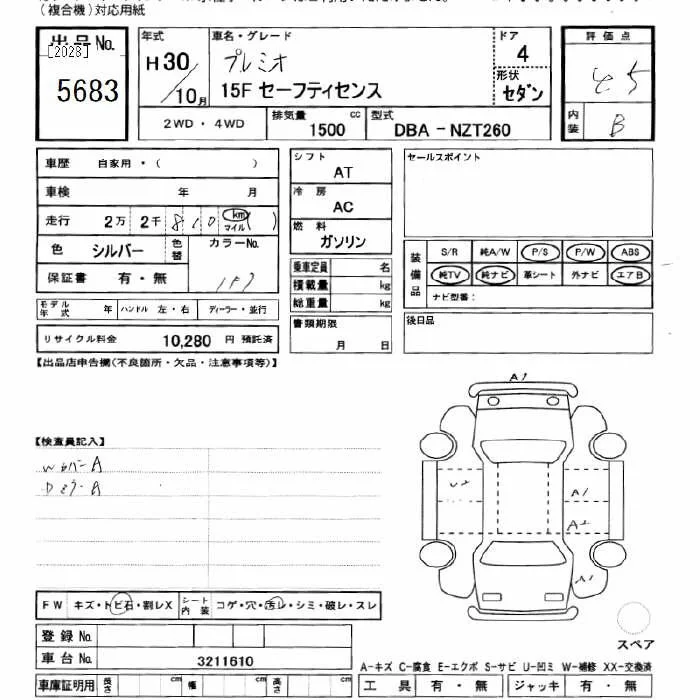 (複合機)対応用紙
出品No.
[2028]
5683
年式
H30/10月
車名・グレード
プレミオ
15F セーフティセンス
ドア
4
形状
セダン
評価点
内装
B
2WD・4WD
排気量
1500 cc
型式
DBA-NZT260
車歴 自家用・( )
車検 年 月
走行 2万 2千 810 km マイル ( )
色 シルバー 色替 カラーNo.
1F7
保証書 有・無
モデル年式 年 ハンドル 左・右 ディーラー・並行
リサイクル料金 10,280 円 預託済
シフト
AT
冷房
AC
燃料
ガソリン
乗車定員 名
積載量 kg
総重量 kg
書類期限
月 日
セールスポイント
装備品
S/R 純A/W P/S P/W ABS
純TV 純ナビ 革シート 外ナビ エアB
ナビ型番:
後日品
【出品店申告欄(不良箇所・欠品・注意事項等)】
【検査員記入】
WカバーA
DミラーA
A1
A1
A2
A1
FW キズ・トビ石・割レX シート内装 コゲ・穴・汚レ・シミ・破レ・スレ
登録No.
車台No. 3211610
車庫証明用 長さ cm 幅 cm 高さ cm
スペア
A-キズ C-腐食 E-エクボ S-サビ U-凹ミ W-補修 XX-交換済
工具 有・無 ジャッキ 有・無